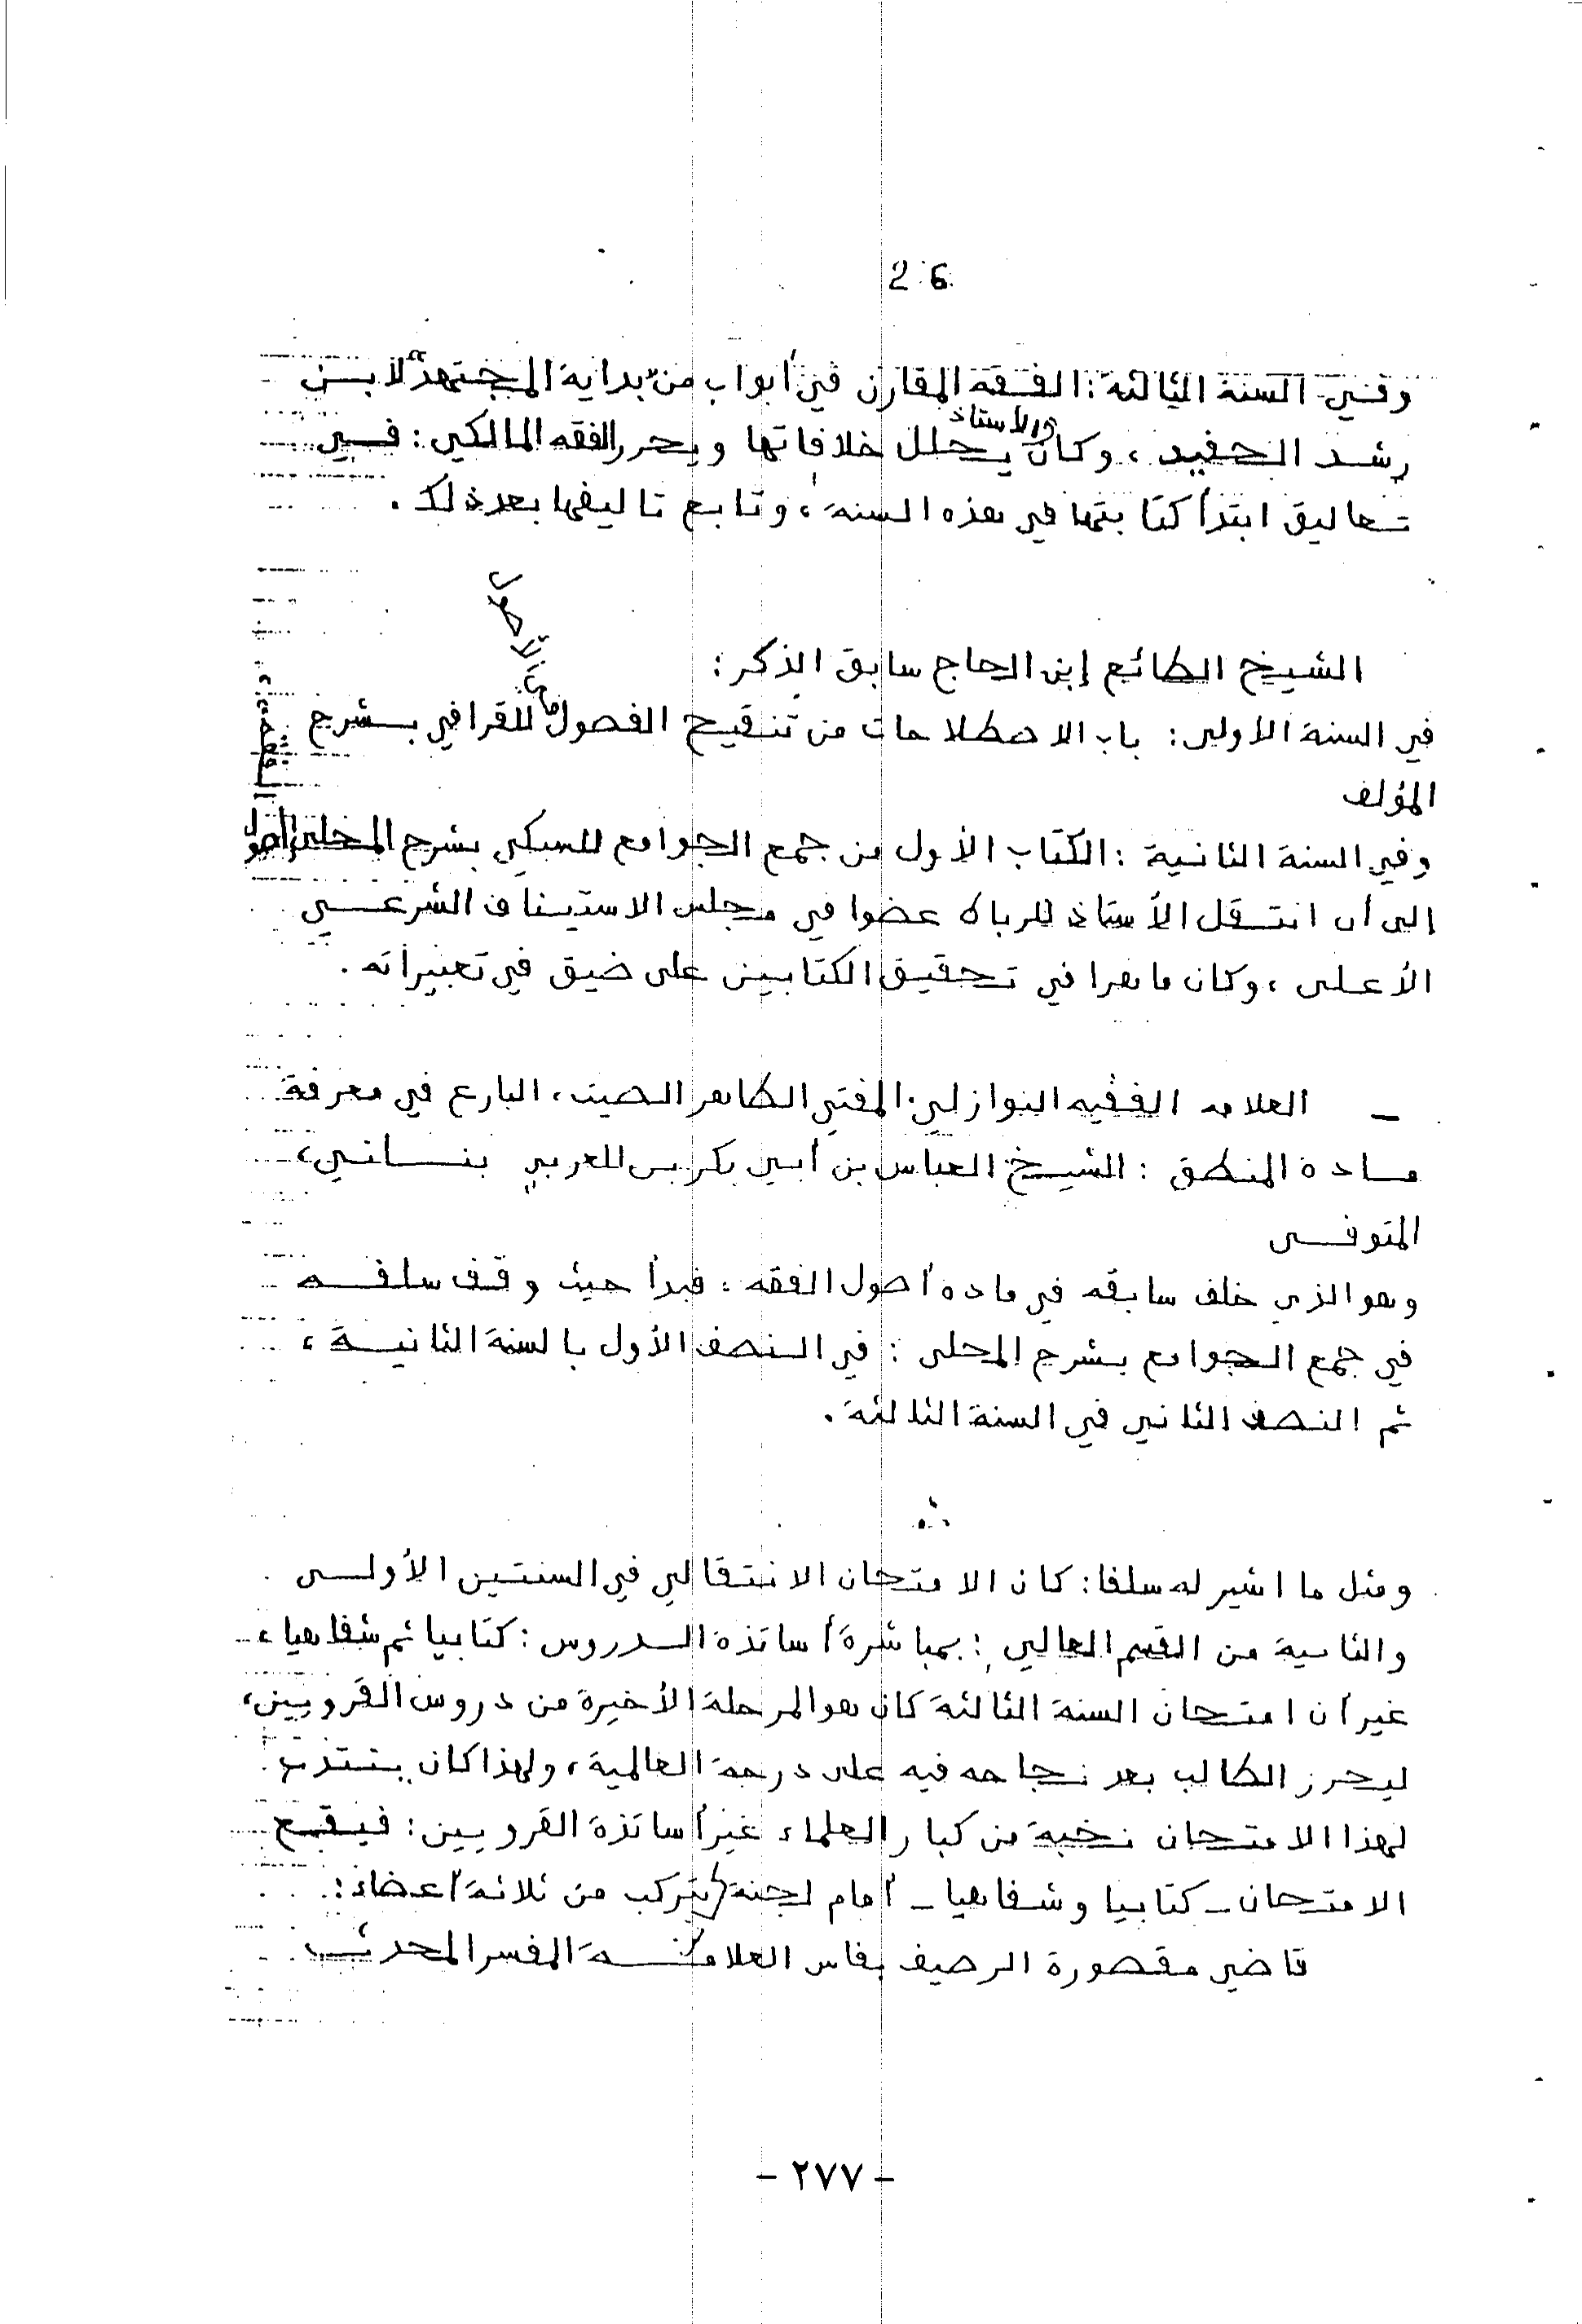 26
وفي السنة الثالثة : الفقه المقارن في أبواب من "بداية المجتهد" لابن
رشد الحفيد ، وكان الأستاذ يحلل خلافاتها ويحرر الفقه المالكي : في
تعاليق ابتدأ كتابتها في هذه السنة ، وتابع تاليفها بعد ذلك .
الشيخ الطائع إبن الحاج سابق الذكر :
في الأصول
في السنة الأولى : باب الاصطلاحات من تنقيح الفصول للقرافي بشرح
المؤلف
وفي السنة الثانية : الكتاب الأول من جمع الجوامع للسبكي بشرح المحلى
إلى أن انتقل الأستاذ للرباط عضوا في مجلس الاستيناف الشرعي
الأعلى ، وكان ماهرا في تحقيق الكتابين على ضيق في تعبيراته .
– العلامة الفقيه النوازلي المفتي الطاهر الصيت ، البارع في معرفة
مادة المنطق : الشيخ العباس بن أبي بكر بن العربي بناني ،
المتوفى
وهو الذي خلف سابقه في مادة أصول الفقه ، فبدأ حيث وقف سلفه
في جمع الجوامع بشرح المحلى : في النصف الأول بالسنة الثانية ،
ثم النصف الثاني في السنة الثالثة .
ومثل ما اشير له سلفا : كان الامتحان الانتقالي في السنتين الأولى
والثانية من القسم العالي : بمباشرة أساتذة الدروس : كتابيا ثم شفاهيا ،
غير أن امتحان السنة الثالثة كان هو المرحلة الأخيرة من دروس القرويين ،
ليحرز الطالب بعد نجاحه فيه على درجة العالمية ، ولهذا كان ينتدب
لهذا الامتحان نخبة من كبار العلماء غير أساتذة القرويين : فيقع
الامتحان – كتابيا وشفاهيا – أمام لجنة يتركب من ثلاثة أعضاء :
قاضي مقصورة الرصيف بفاس العلامة المفسر المحدث
– ٢٧٧ –